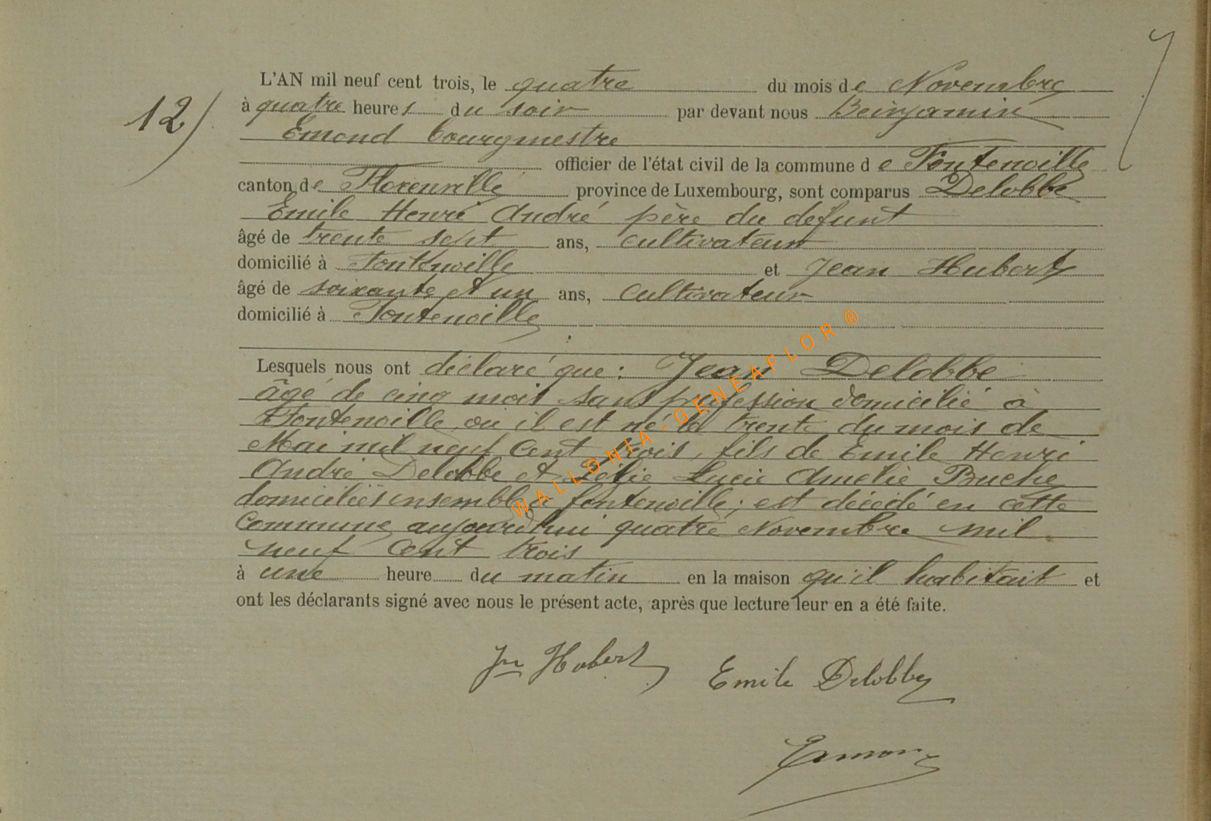 L'AN mil neuf cent trois, le quatre du mois de Novembre
12) à quatre heures du soir par devant nous Benjamin
Emond bourgmestre
officier de l'état civil de la commune de Fontenoille
canton de Florenville province de Luxembourg, sont comparus Delobbe
Emile Henri André père du défunt
âgé de trente sept ans, cultivateur
domicilié à Fontenoille et Jean Hubert
âgé de soixante et un ans, cultivateur
domicilié à Fontenoille
Lesquels nous ont déclaré que: Jean Delobbe
âgé de cinq mois sans profession domicilié à
Fontenoille, où il est né le trente du mois de
Mai mil neuf cent trois, fils de Emile Henri
André Delobbe et Lucie Amelie
domiciliés ensemble à fontenoille; est décédé en cette
Commune aujourd'hui quatre Novembre mil
neuf cent trois
à une heure du matin en la maison qu'il habitait et
ont les déclarants signé avec nous le présent acte, après que lecture leur en a été faite.
Jn Hubert Emile Delobbe
Emond
WALLONIA-GENEAFLOR®